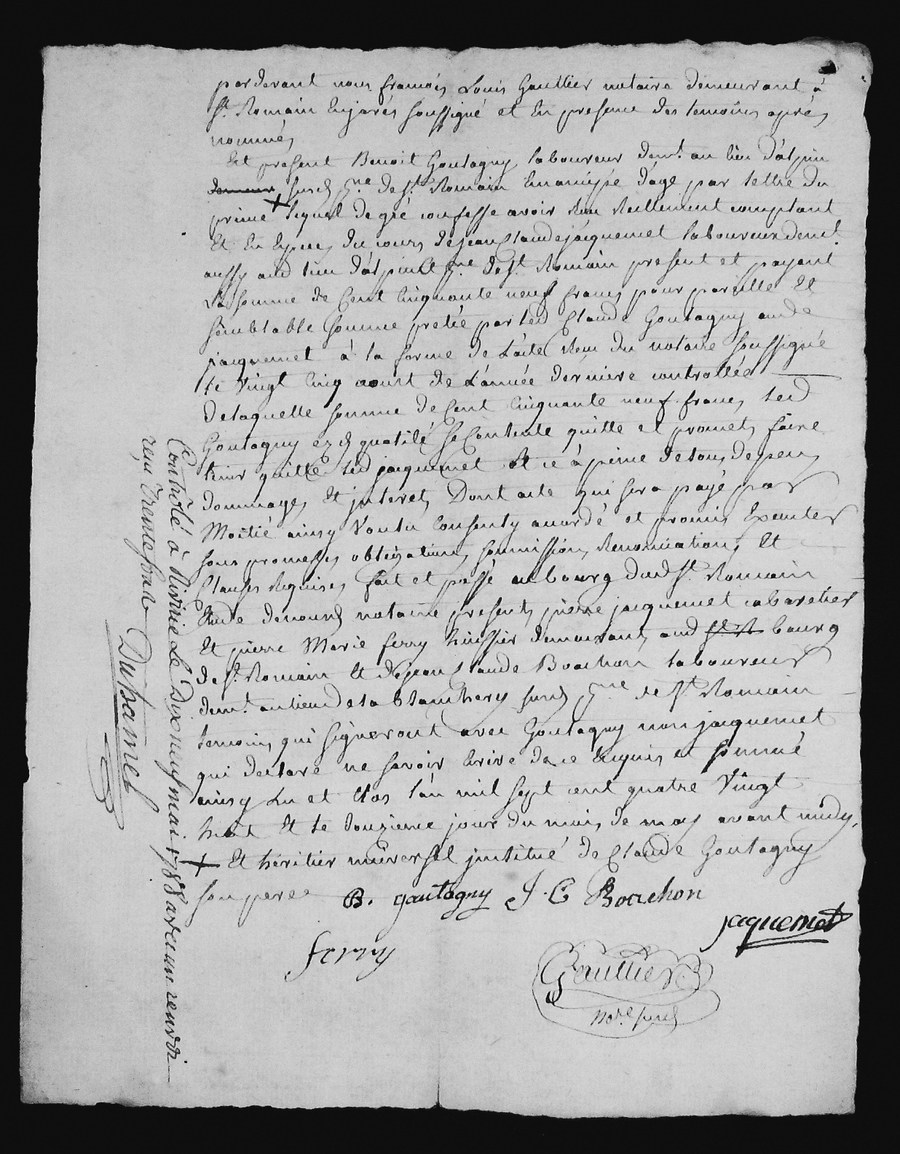 pardevant nous francois Louis Gaultier notaire demeurant à
St. Romain En jarés soussigné et En presence des temoins aprés
nommés
Est présent Benoit Goutagny laboureur demt. au lieu d'alpin
susd. psse. de St. Romain Emancipé dage par lettre du
prince + lequel de gré confesse avoir Reçu Réellement comptant
Et En Espece du cours de jean Claude jacquemet laboureur demt.
aussy aud lieu d'alpin de St Romain present et payant
La somme de Cent Cinquante neuf francs pour pareille Et
semblable somme pretée par led Claude Goutagny aud
jacquemet à la forme de L'acte Reçu du notaire soussigné
le Vingt Cinq aoust de L'année derniere controllée
De laquelle somme de Cent Cinquante neuf francs led
Goutagny ezd qualité se Contente quitte et promet faire
tenir quitte led jacquemet Et ce à peine de tous depens
Dommages Et interets Dont acte qui sera payé par
Moitié ainsy Voulu Consenty accordé et promis Executer
sous promesses obligations soumissions Renonciations Et
Clauses Requises fait et passé au bourg dud St. Romain
Etude de nousd notaire presents pierre jacquemet cabaretier
Et pierre Marie ferry huissier demeurants aud bourg
de St. Romain Et de jean Claude Bouchon laboureur
demt. au lieu de la Chambery susd psse. de St Romain
temoins qui signeront avec Goutagny non jacquemet
qui declare ne savoir Ecrire de ce Enquis et sommé
ainsy Lu et Clos l'an mil sept cent quatre Vingt
huit Et le douzieme jour du mois de may avant midy.
+ Et héritier universel institué de Claude Goutagny
son pere B. goutagny J. C Bouchon
jaquemet
ferry
Gaultier
Nore. susd
Contrôlé à Rivirie Le Dixneuf mai 1788
reçu trente sous
Duhamel